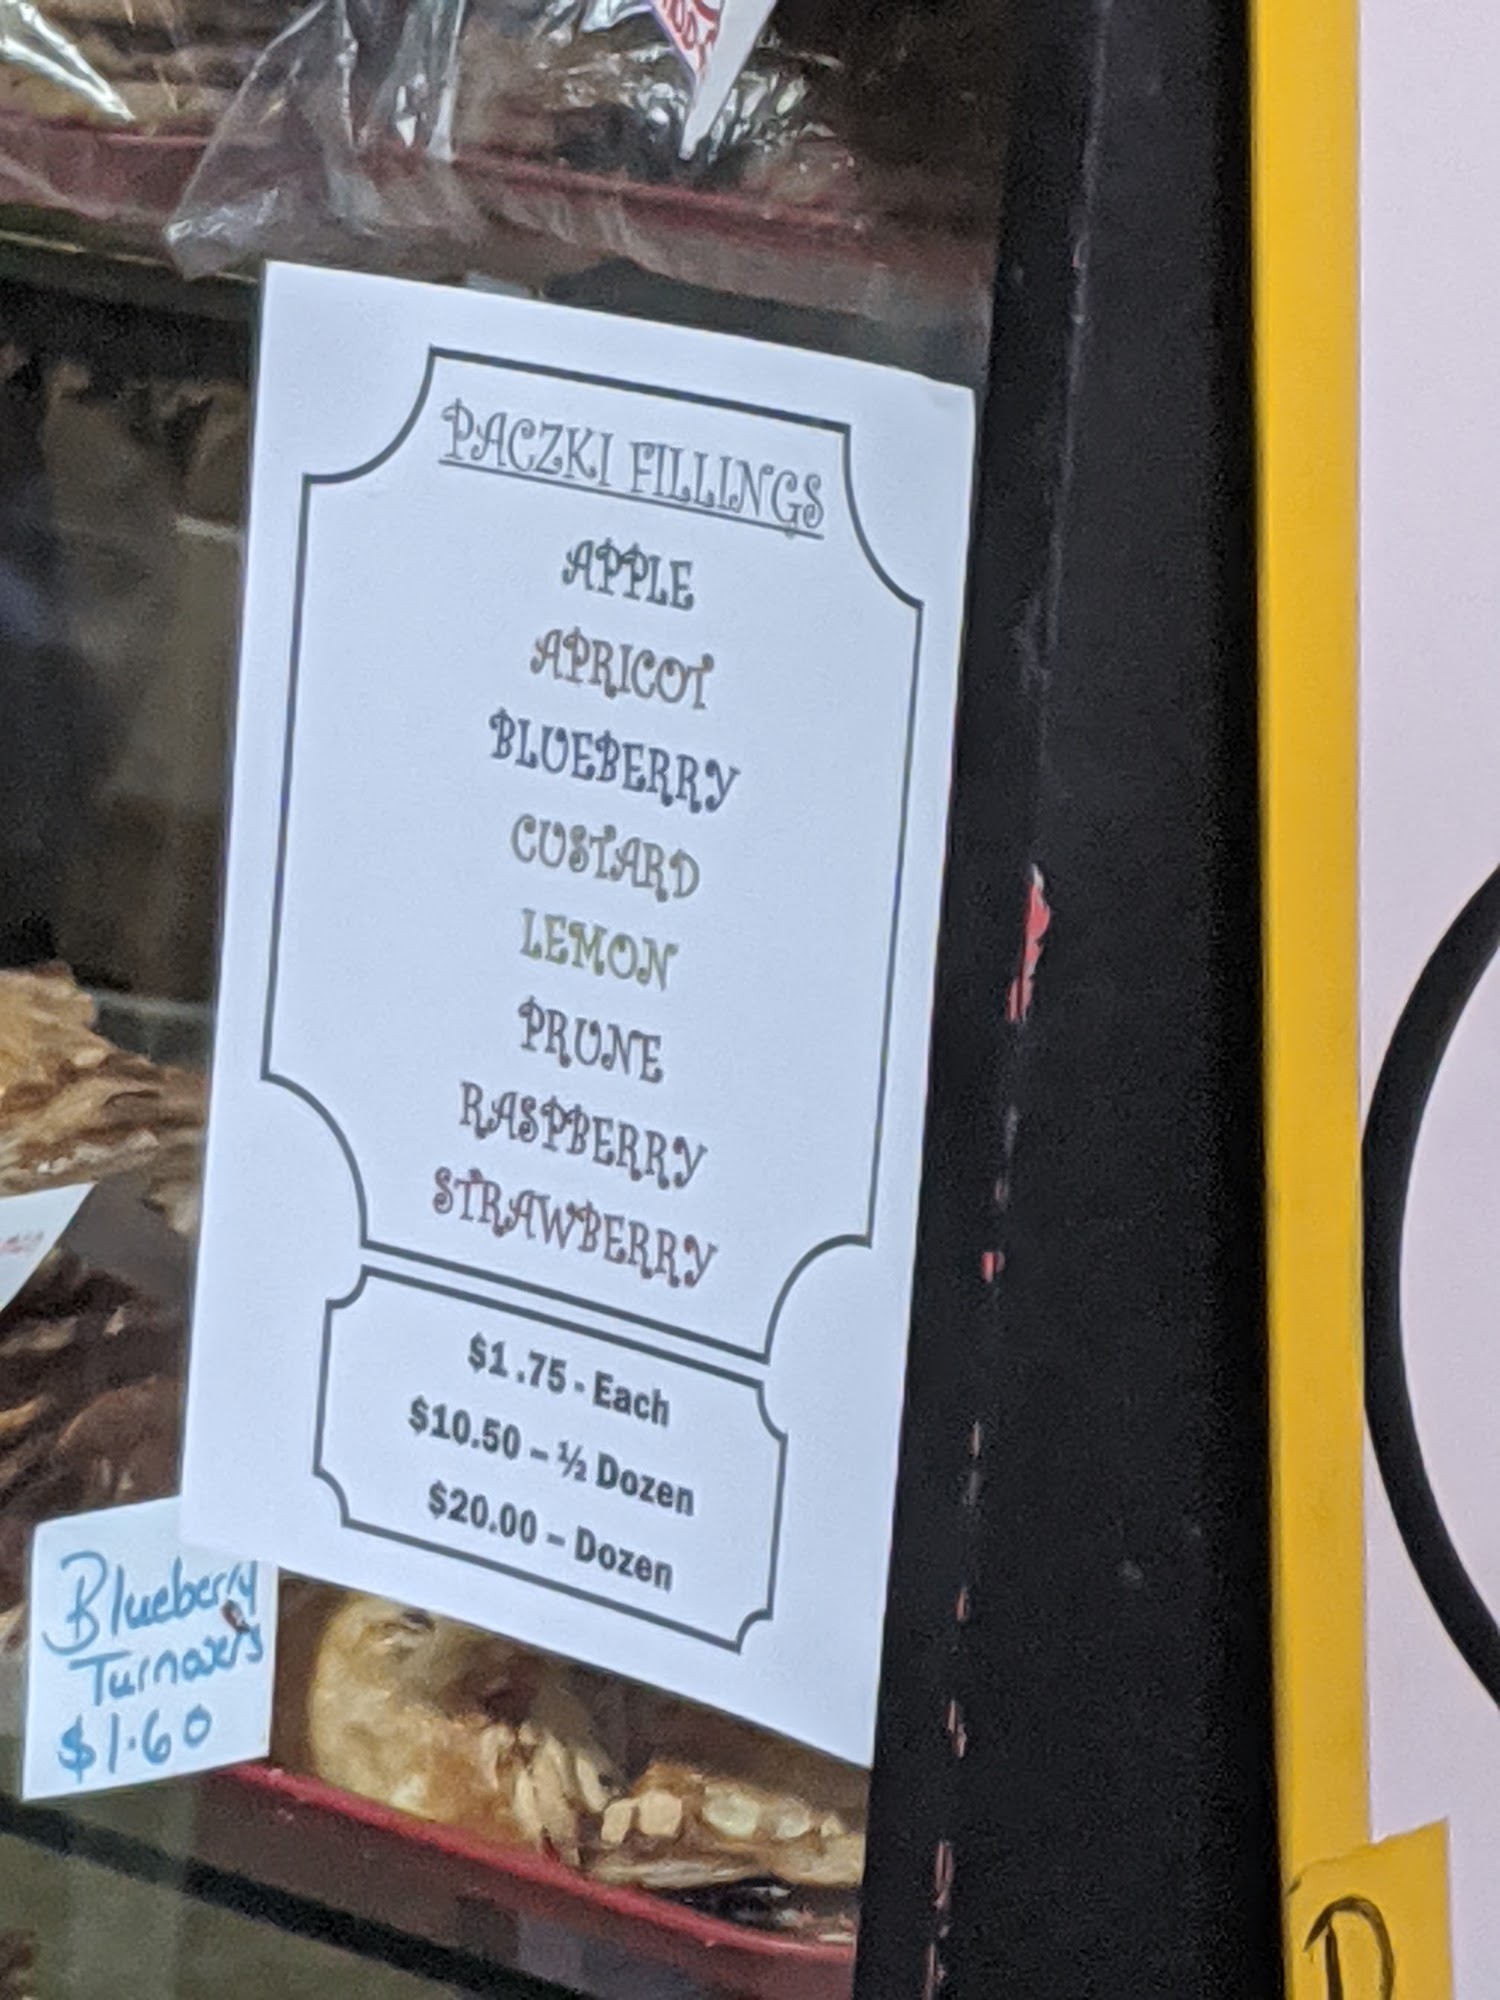 PACZKI FILLINGS
APPLE
APRICOT
BLUEBERRY
CUSTARD
LEMON
PRUNE
RASPBERRY
STRAWBERRY
$1.75 - Each
$10.50 – ½ Dozen
$20.00 – Dozen
Blueberry
Turnovers
$1.60